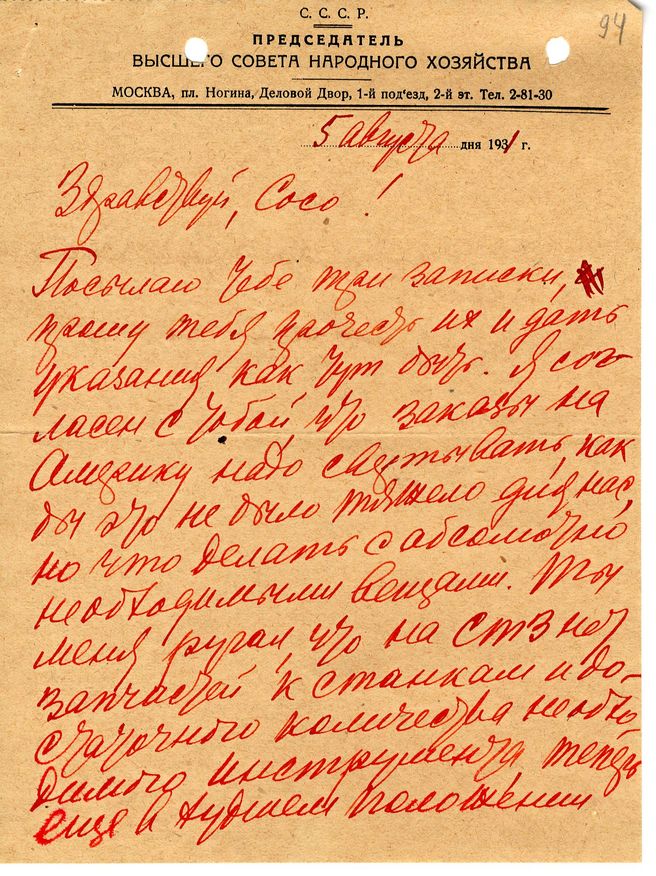 94
С. С. С. Р.
ПРЕДСЕДАТЕЛЬ
ВЫСШЕГО СОВЕТА НАРОДНОГО ХОЗЯЙСТВА
МОСКВА, пл. Ногина, Деловой Двор, 1-й под'езд, 2-й эт. Тел. 2-81-30
5 августа дня 1931 г.
Здравствуй, Сосо!
Посылаю тебе три записки,
прошу тебя прочесть их и дать
указания как тут быть. Я сог-
ласен с тобой, что заказы на
Америку надо свертывать, как
бы это не было тяжело для нас,
но что делать с абсолютно
необходимыми вещами. Ты
меня ругал, что на СТЗ нет
запчастей к станкам и до-
статочного количества необхо
димого инструмента теперь
еще в худшем положении